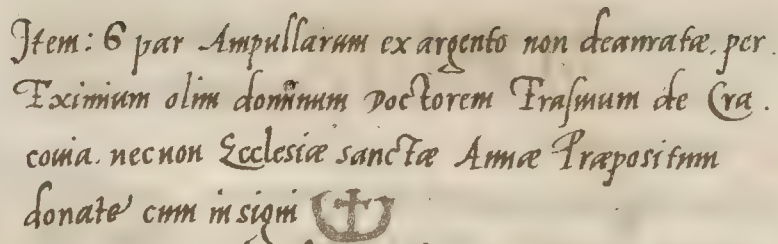 Item: 6 par Ampullarum ex argento non deauratæ. per.
Eximium olim dominum Doctorem Erasmum de Cra.
couia. necnon Ecclesiæ sanctæ Annæ Præpositum
donate cum insigni